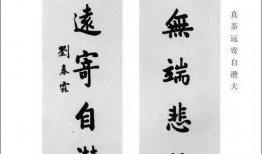 真茶远寄自潜夫
無端悲
遠寄自潛
劉春霖